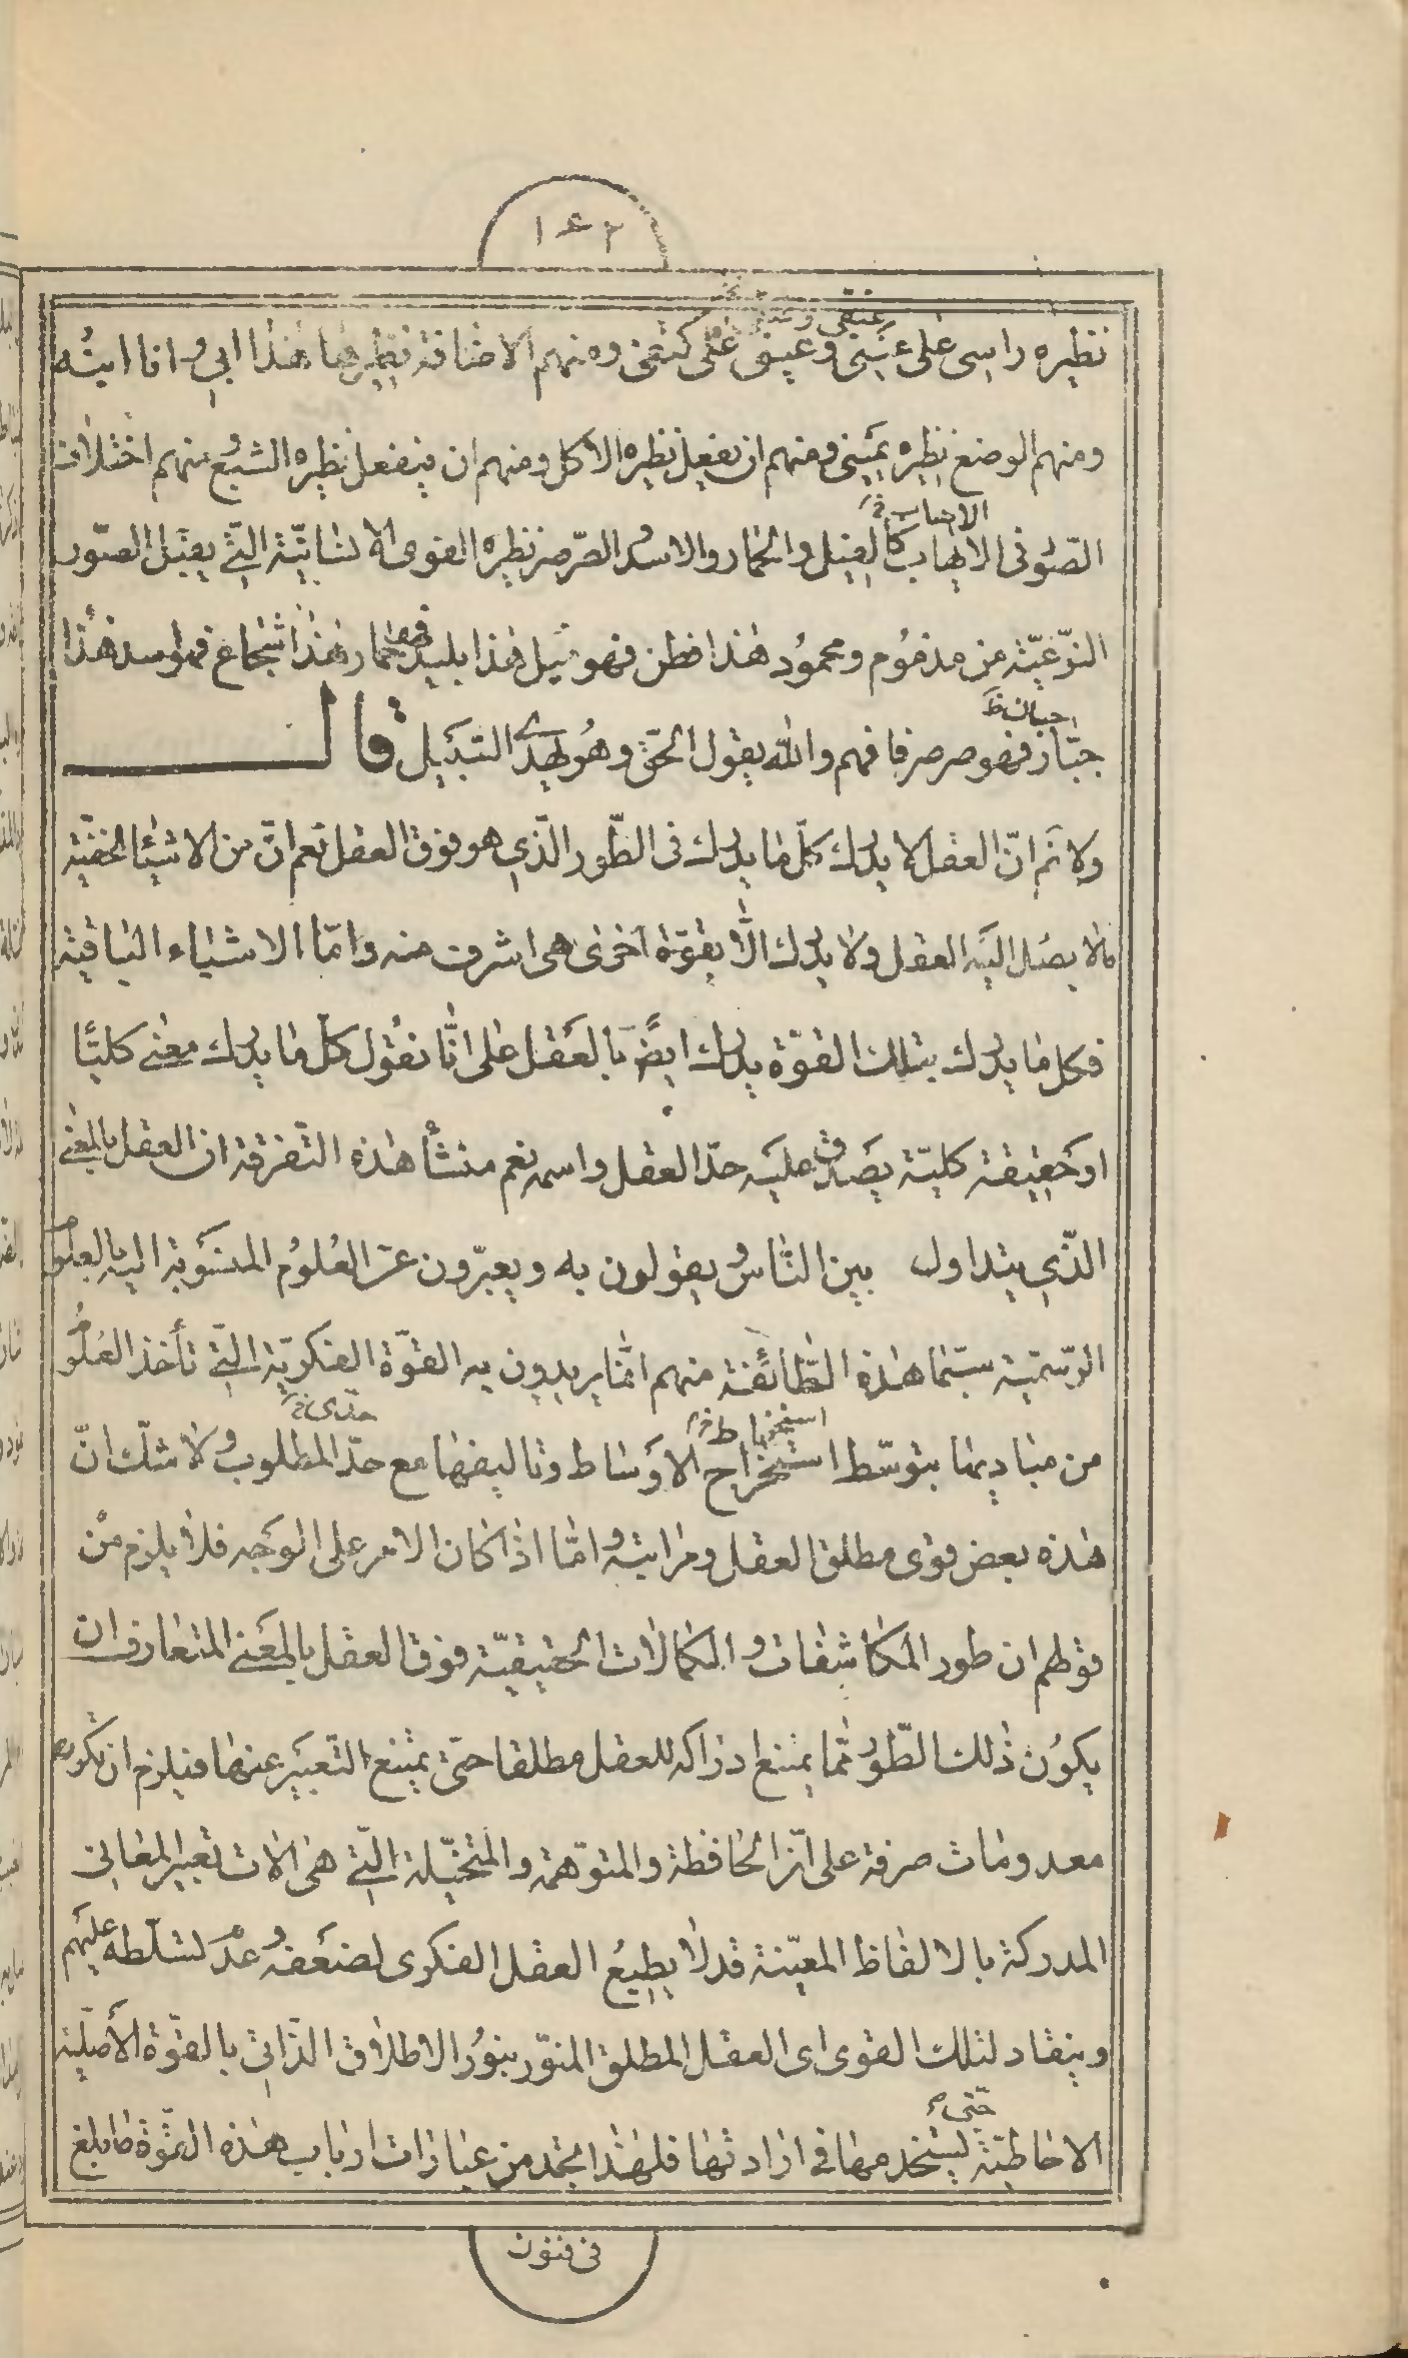 ١٤٢
نظيره راسى على عينى وعينى على كتفى ومنهم الاضافة نظيرها هذا ابى وانا ابنه
ومنهم الوضع نظيره يمينى ومنهم ان يفعل نظيره الاكل ومنهم ان ينفعل نظيره الشبع منهم اختلاف
الصّور فى الايهاب كالفيل والحمار والاسد الصّرصر نظيره القوى الانسانيّة الّتى يقبل الصّور
النّوعيّة من مذموم ومحمود هذا فطن فهو فيل هذا بليد فهو حمار هذا شجاع فهو اسد هذا
جبان ظ
جبّار فهو صرصر فافهم والله يقول الحقّ وهو يهدى السّبيل قال
ولا نم انّ العقل لا يدرك كلّ ما يدرك فى الطّور الّذى هو فوق العقل نعم انّ من الاشياء الخفيّة
مالا يصل اليه العقل ولا يدرك الّا بقوّة اخرى هى اشرف منه وامّا الاشياء الباقية
فكل ما يدرك بتلك القوّة يدرك ايضً بالعقل على انّا نقول كلّ ما يدرك معنى كليًّا
او حقيقة كليّة يصدق عليه حدّ العقل واسمه نعم منشأ هذه التّفرقة ان العقل بالمعنى
الّذى يتداول بين النّاس ويقولون به ويعبّرون عن العلوم المنسوبة اليه بالعلوم
الرّسميّة سيّما هذه الطّائفة منهم انّما يريدون به القوّة الفكريّة الّتى تأخذ العلوم
استنباط خ حدّى خ
من مباديها بتوسّط استخراج الاوساط وتاليفها مع حدّ المطلوب ولا شكّ انّ
هذه بعض قوى مطلق العقل ومراتبه وامّا اذا كان الامر على الوجه فلا يلزم من
قولهم ان طور المكاشفات والكمالات الحقيقيّة فوق العقل بالمعنى المتعارف ان
يكون ذلك الطّور ممّا يمتنع ادراكه للعقل مطلقا حتّى يمتنع التّعبير عنها فيلزم ان يكون
معدومات صرفة على انّ الحافظة والمتوهّمة والمتخيّلة الّتى هى الات تعبير المعانى
المدركة بالالفاظ المعيّنة قد لا يطيع العقل الفكرى لضعفه وعدم تسلّطه عليهم
وينقاد لتلك القوى اى العقل المطلق المنوّر بنور الاطلاق الذّاتى بالقوّة الاصليّة
حتى
الاحاطيّة ليستخدمها فى ارادتها فلهذا تجد من عبارات ارباب هذه القوّة ما بلغ
فى فنون